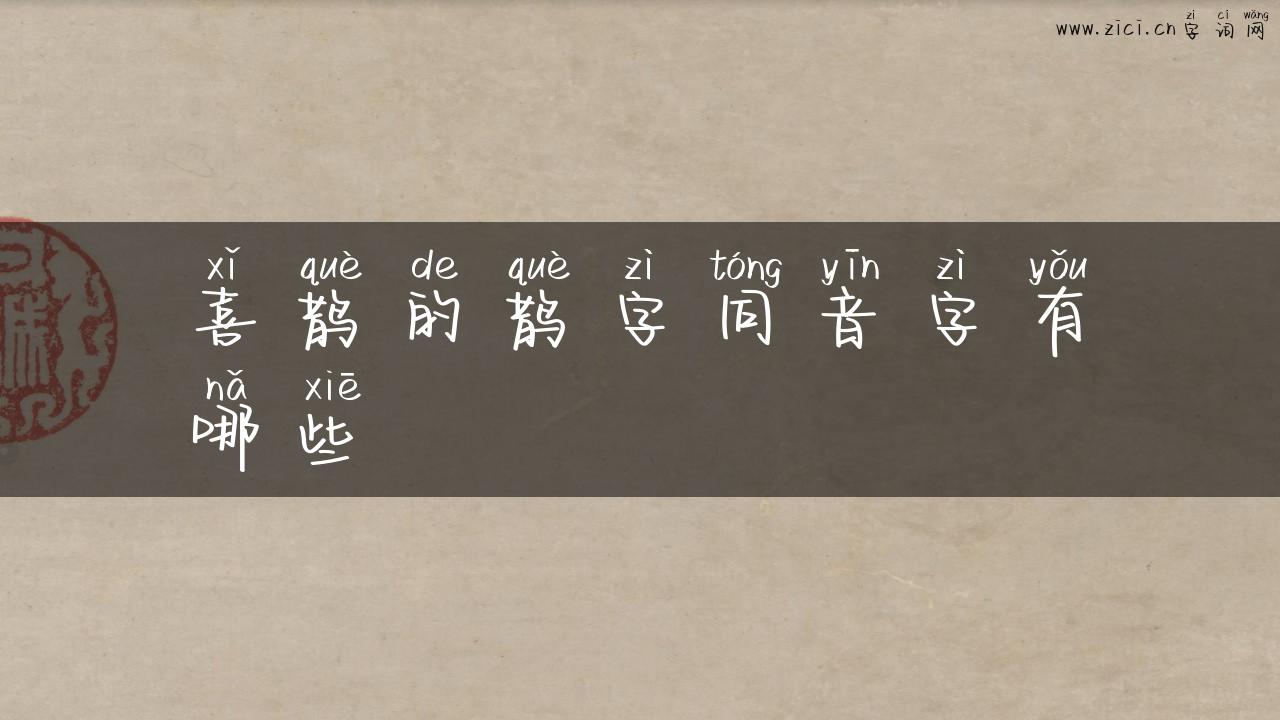 zì cí wǎng
www.zici.cn 字词网
xǐ què de què zì tóng yīn zì yǒu
喜鹊的鹊字同音字有
nǎ xiē
哪些